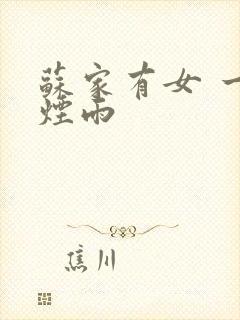 蘇家有女 一
煙雨
焦川